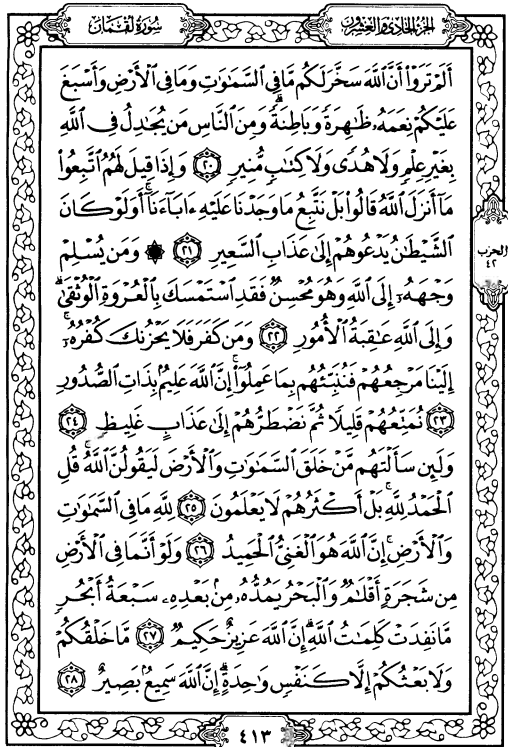 سورة لقمان
الجزء الحادي والعشرون
أَلَمْ تَرَوْا۟ أَنَّ ٱللَّهَ سَخَّرَ لَكُم مَّا فِى ٱلسَّمَـٰوَٰتِ وَمَا فِى ٱلْأَرْضِ وَأَسْبَغَ
عَلَيْكُمْ نِعَمَهُۥ ظَـٰهِرَةً وَبَاطِنَةً ۗ وَمِنَ ٱلنَّاسِ مَن يُجَـٰدِلُ فِى ٱللَّهِ
بِغَيْرِ عِلْمٍ وَلَا هُدًى وَلَا كِتَـٰبٍ مُّنِيرٍ ٢٠ وَإِذَا قِيلَ لَهُمُ ٱتَّبِعُوا۟
مَآ أَنزَلَ ٱللَّهُ قَالُوا۟ بَلْ نَتَّبِعُ مَا وَجَدْنَا عَلَيْهِ ءَابَآءَنَآ ۚ أَوَلَوْ كَانَ
ٱلشَّيْطَـٰنُ يَدْعُوهُمْ إِلَىٰ عَذَابِ ٱلسَّعِيرِ ٢١ ۞ وَمَن يُسْلِمْ
وَجْهَهُۥٓ إِلَى ٱللَّهِ وَهُوَ مُحْسِنٌ فَقَدِ ٱسْتَمْسَكَ بِٱلْعُرْوَةِ ٱلْوُثْقَىٰ ۗ
وَإِلَى ٱللَّهِ عَـٰقِبَةُ ٱلْأُمُورِ ٢٢ وَمَن كَفَرَ فَلَا يَحْزُنكَ كُفْرُهُۥٓ ۚ
إِلَيْنَا مَرْجِعُهُمْ فَنُنَبِّئُهُم بِمَا عَمِلُوٓا۟ ۚ إِنَّ ٱللَّهَ عَلِيمٌۢ بِذَاتِ ٱلصُّدُورِ
٢٣ نُمَتِّعُهُمْ قَلِيلًا ثُمَّ نَضْطَرُّهُمْ إِلَىٰ عَذَابٍ غَلِيظٍ ٢٤
وَلَئِن سَأَلْتَهُم مَّنْ خَلَقَ ٱلسَّمَـٰوَٰتِ وَٱلْأَرْضَ لَيَقُولُنَّ ٱللَّهُ ۚ قُلِ
ٱلْحَمْدُ لِلَّهِ ۚ بَلْ أَكْثَرُهُمْ لَا يَعْلَمُونَ ٢٥ لِلَّهِ مَا فِى ٱلسَّمَـٰوَٰتِ
وَٱلْأَرْضِ ۚ إِنَّ ٱللَّهَ هُوَ ٱلْغَنِىُّ ٱلْحَمِيدُ ٢٦ وَلَوْ أَنَّمَا فِى ٱلْأَرْضِ
مِن شَجَرَةٍ أَقْلَـٰمٌ وَٱلْبَحْرُ يَمُدُّهُۥ مِنۢ بَعْدِهِۦ سَبْعَةُ أَبْحُرٍ
مَّا نَفِدَتْ كَلِمَـٰتُ ٱللَّهِ ۗ إِنَّ ٱللَّهَ عَزِيزٌ حَكِيمٌ ٢٧ مَّا خَلْقُكُمْ
وَلَا بَعْثُكُمْ إِلَّا كَنَفْسٍ وَٰحِدَةٍ ۗ إِنَّ ٱللَّهَ سَمِيعٌۢ بَصِيرٌ ٢٨
الحزب
٤٢
٤١٣